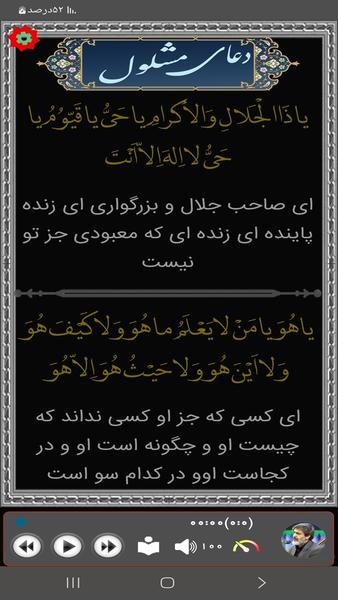 ۵۲درصد
دعای مشلول
یا ذَا الْجَلالِ وَالاْکرامِ یا حَیُّ یا قَیّوُمُ یا
حَیُّ لا اِلهَ اِلاّ اَنْتَ
ای صاحب جلال و بزرگواری ای زنده
پاینده ای زنده ای که معبودی جز تو
نیست
یا هُوَ یا مَنْ لا یَعْلَمُ ما هُوَ وَلا کَیْفَ هُوَ
وَلا اَیْنَ هُوَ وَلا حَیْثُ هُوَ اِلاّ هُوَ
ای کسی که جز او کسی نداند که
چیست او و چگونه است او و در
کجاست اوو در کدام سو است
۰۰:۰۰(۰:۰)
۱۰۰